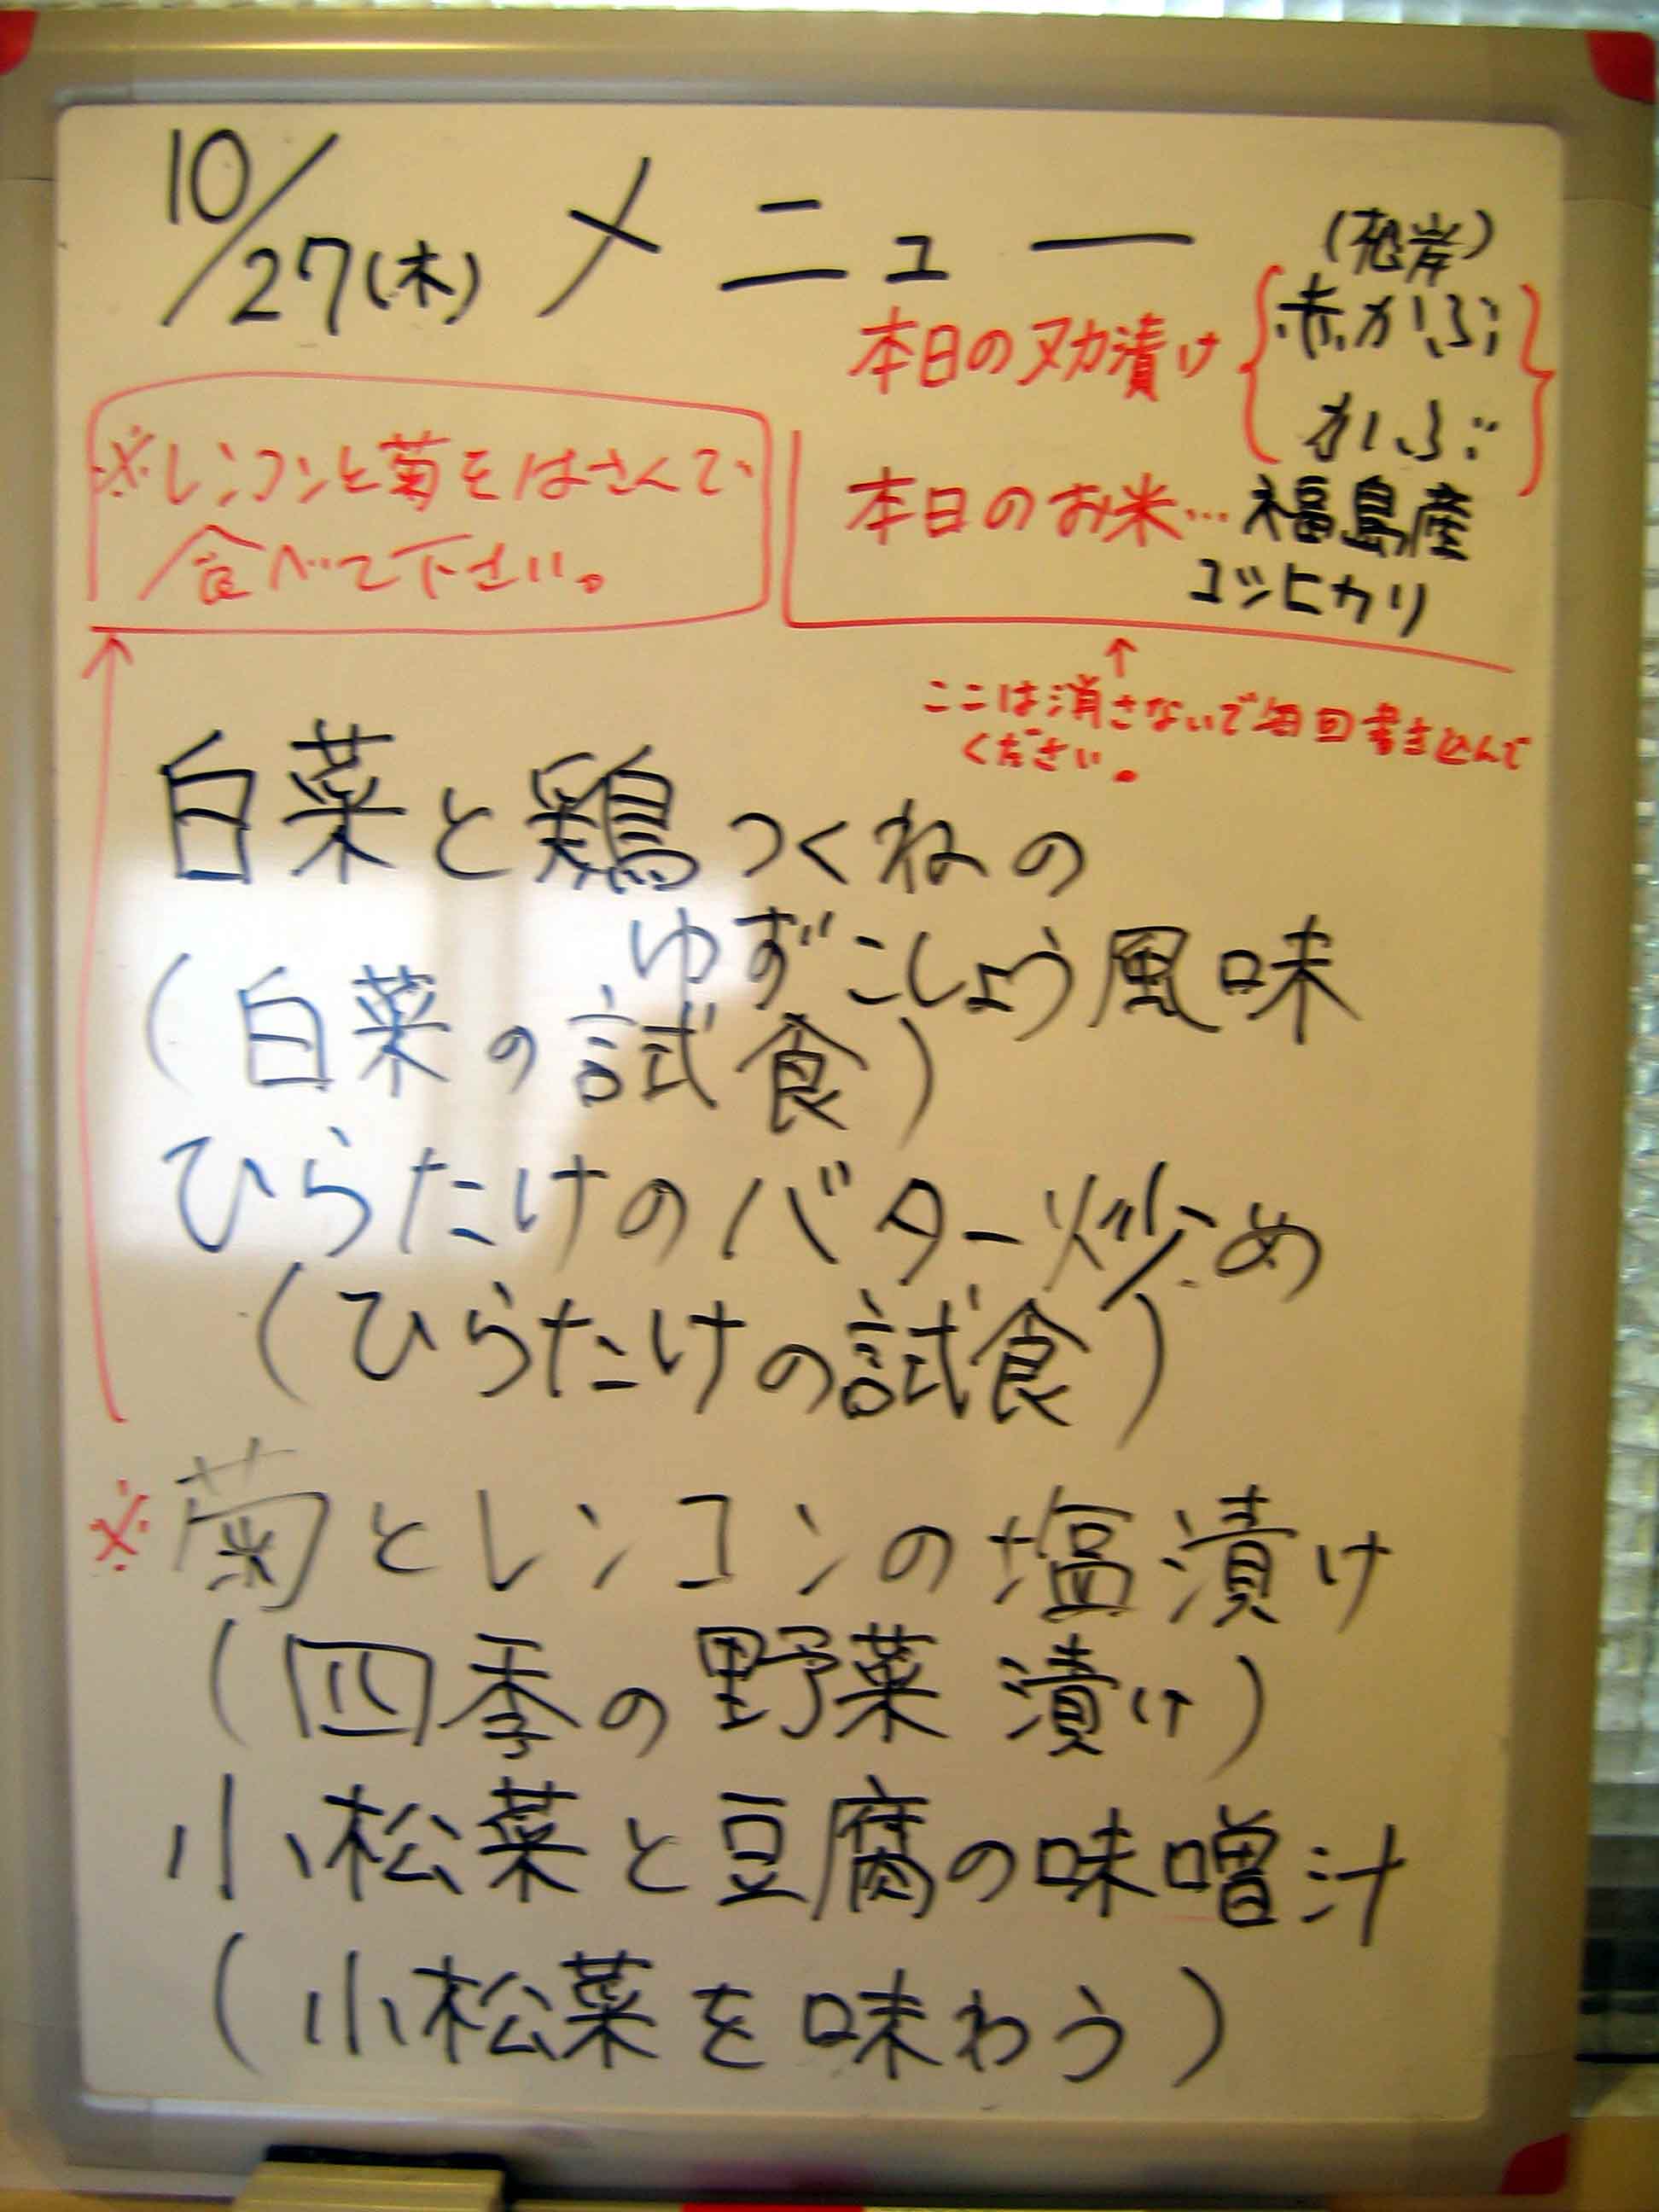 10/27(木) メニュー
本日のヌカ漬け { 赤かぶ
かぶ }
本日のお米…福島産
コシヒカリ
↑
ここは消さないで毎回書き込んで
ください。
※レンコンと菊をはさんで
食べて下さい。
白菜と鶏つくねの
ゆずこしょう風味
(白菜の試食)
ひらたけのバター炒め
(ひらたけの試食)
※菊とレンコンの塩漬け
(四季の野菜漬け)
小松菜と豆腐の味噌汁
(小松菜を味わう)